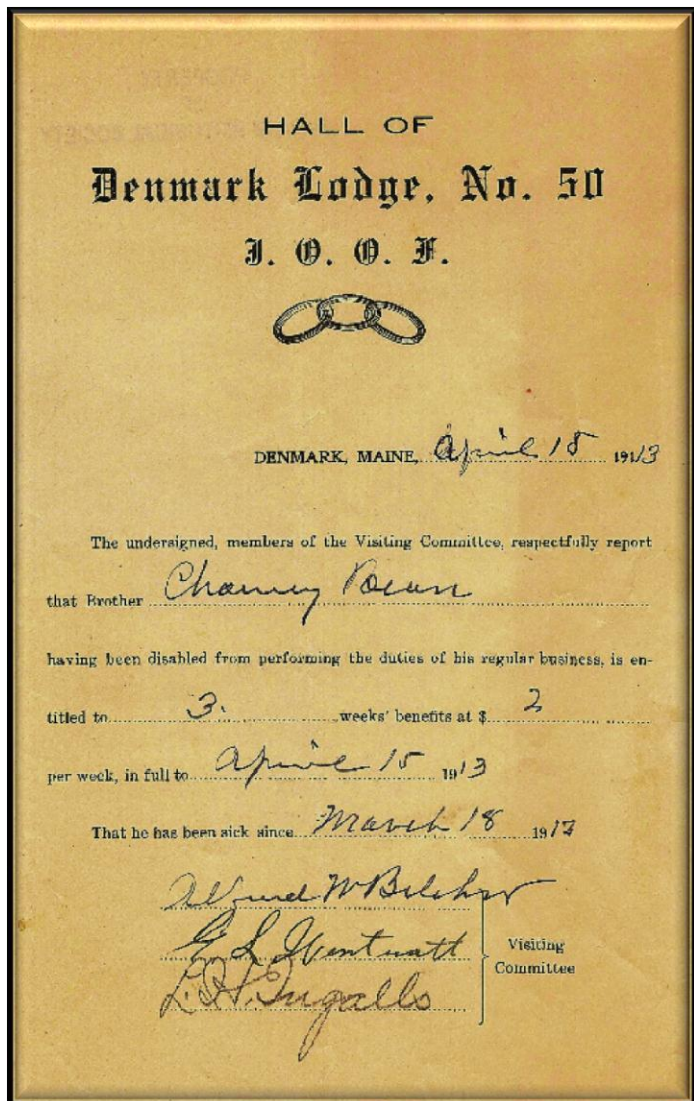 HALL OF
Denmark Lodge, No. 50
I. O. O. F.
DENMARK, MAINE, April 18 1913
The undersigned, members of the Visiting Committee, respectfully report
that Brother Chauncy Bean
having been disabled from performing the duties of his regular business, is en-
titled to 3. weeks' benefits at $ 2
per week, in full to April 15 1913
That he has been sick since March 18 1913
Alfred W Belcher
E L Wentworth
Visiting
Committee
L. H. Ingalls